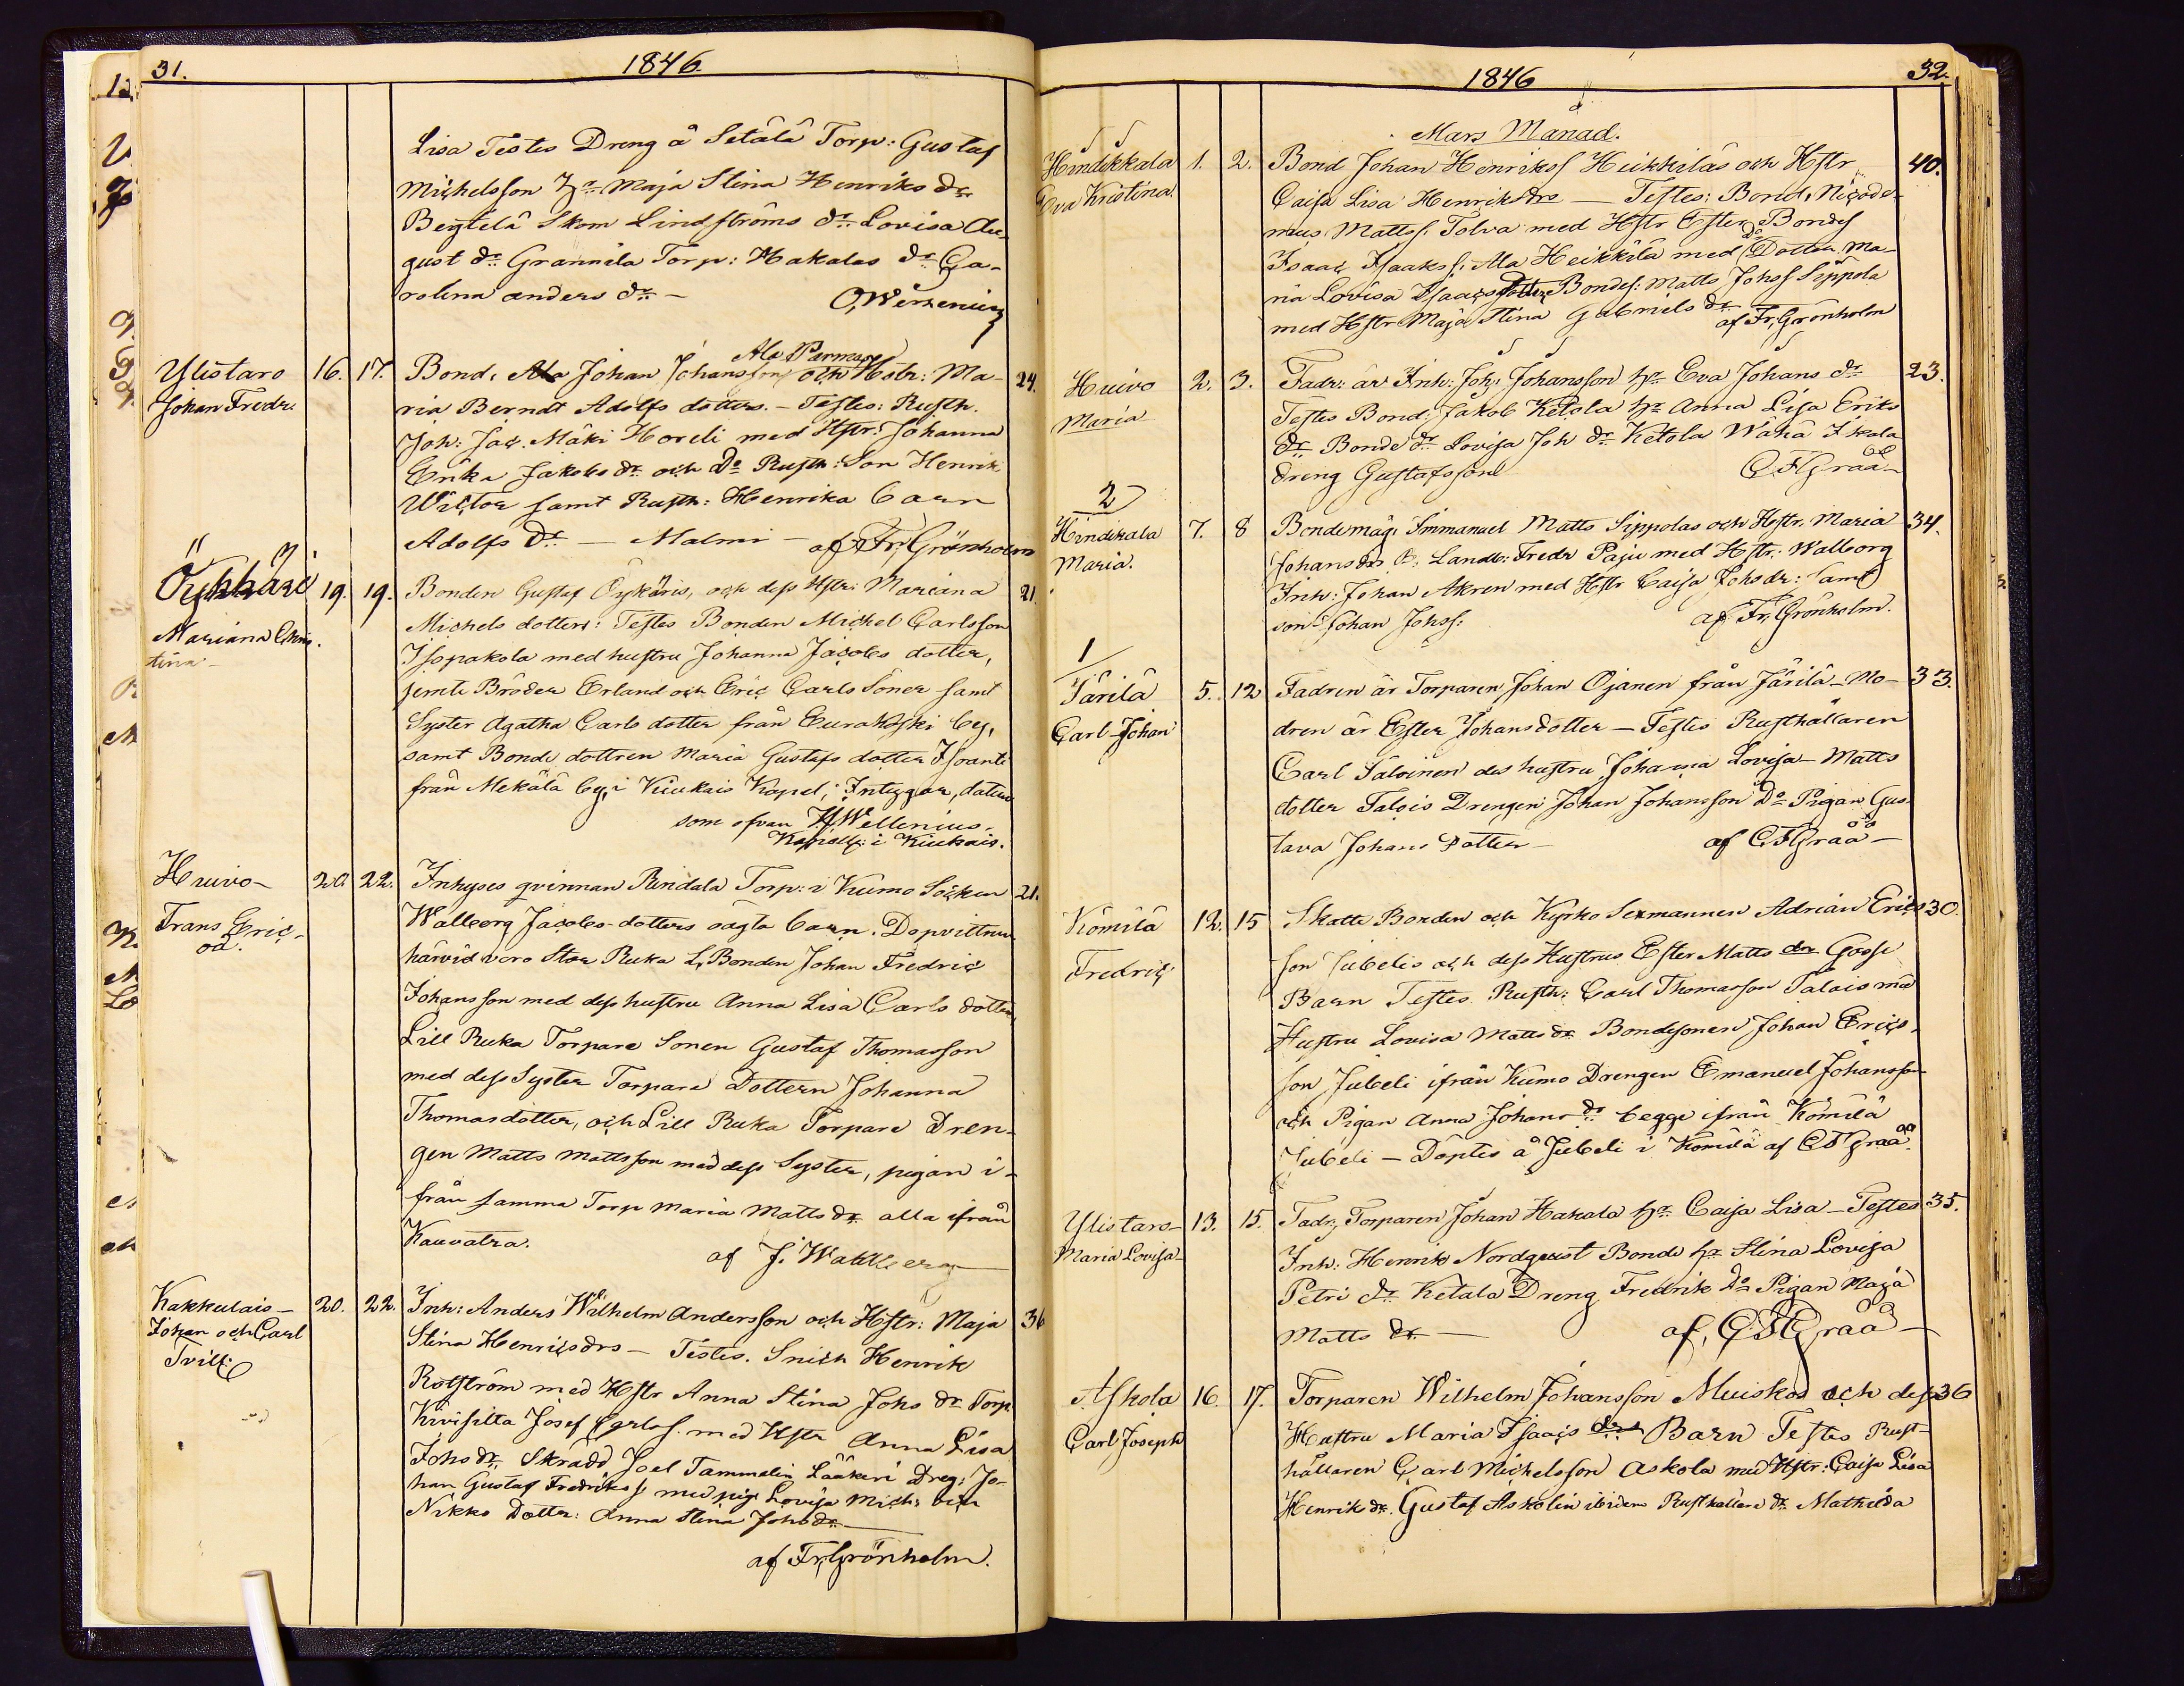 31.
1846.
Lisa Testes Dreng å Setälä Torp: Gustaf
Michelsson h:r Maja Stina Henriks dr
Bergtelä Skom Lindströms d:r Lovisa Au-
gust d:r Grannila Torp: Hakalas d:r Ca-
rolina anders d:r –
Ylistaro 16. 17. Bond. Johan Johansson Ala Parma och Hstr: Ma- 24.
Johan Fredr. ria Berndt Adolfs dotters. – Testes: Rusth.
Joh: Jac. Mäki Horeli med Hstr: Johanna
Erika Jakobs dr och D:o Rusth: Son Henrik
Wictor samt Rusth: Henrika Caen
Adolfs D:r – Malmi – af Fr. Grönholm
19. 19. Bonden Gustaf Öykäris, och dess Hstr: Mariana 21.
Mariana Chris- Michels dotters: Testes Bonden Michel Carlsson
tina – Isopakola med hustru Johanna Jacobs dotter,
jemte Bröder Erland och Eric Carls Söner samt
Syster Agatha Carls dotter från Eurakoski by,
samt Bonde dottren Maria Gustafs dotter Isoanti
från Mekälä by, i Kiukais Kapel; Intygar, datum
som ofvan HWellenius.
Kapell: i Kiukais.
Huivo – 20. 22. Inhyses qvinnan Rindala Torp: i Kumo Sočken 21.
Frans Eric – Walborg Jacobs-dotters oägta barn. Dopvittnen
oä. härvid voro Stor Ruka L, Bonden Johan Fredric
Johansson med dess hustru Anna Lisa Carls dotter,
Lill Ruka Torpare Sonen Gustaf Thomasson
med dess Syster Torpare Dottern Johanna
Thomasdotter, och Lill Ruka Torpare Dren-
gen Matts Mattsson med dess Syster, pigan i-
från samma Torp Maria Matts dr alla ifrån
Kauvatsa.
af J. Wahlberg
Kakkulais – 20. 22. Inh: Anders Wilhelm Andersson och Hstr: Maja 36
Johan och Carl Stina Henricsdrs – Testes. Snick Henrik
Tvill: Rotström med Hstr Anna Stina Johs dr Torp
Kivisilta Josef Carlss. med Hstr Anna Lisa
Johs dr Skrädd Joel Tammelin Lääkeri Dreg: Jo-
han Gustaf Fredrikss med pig: Lovisa Mich:
Nikko Dotter: Anna Stina Johs dr
af Fr. Grönholm.
1846
32.
Mars Månad.
Hindikkala 1. 2. Bond Johan Henrikss Heikkiläs och Hstr 40.
Eva Kristina. Caisa Lisa Henriksdrs – Testes: Bond. Nicode-
mus Mattss. Tolva med Hstr Ester D:o Bondes
Isaac Isaakss: Ala Heikkilä med Dotter Ma-
ria Lovisa Isaacs dotter Bondes: Matts Johss Sippola
med Hstr Maja Stina Gabriels dr
af Fr. Grönholm
Huivo 2. 3. Fadr: är Inh: Joh: Johansson h:r Eva Johans dr 23.
Maria Testes Bond: Jakob Ketola h:r Anna Lisa Eriks
dr Bonde dr Lovisa Joh dr Ketola Wähä Iskala
Dreng Gustafsson CFGråå –
2
Hindikala 7. 8 Bondemåg. Immanuel Matts Sippolas och Hstr. Maria 34.
Maria. Johansdrs Landb: Fredr Paju med Hstr: Walborg
Inh: Johan Akren med Hstr Caisa Johsdr: samt
son Johan Johss: af Fr. Grönholm.
1
Järilä 5. 12 Fadren är Torparen Johan Ojanen från Järilä – Mo- 33.
Carl Johan dren är Ester Johansdotter – Testes Rusthållaren
Carl Talvinen des hustru Johanna Lovisa – Matts
dotter Talois Drengen Johan Johansson D:o Pigan Gus-
tava Johans Dotter – af CFGråå –
Kömilä 12. 15 Skatte Bonden och Kyrko Sexmannen Adrian Erics 30.
Fredric son Jubelis och dess Hustrus Ester Matts drs Gosse
Barn Testes Rusth: Carl Thomasson Talois med
Hustru Lovisa Matts dr Bondesonen Johan Erics-
son Jubeli ifrån Kumo Drengen Emanuel Johansson
och Pigan Anna Johans dr begge ifrån Kömilä
Jubeli – Döptes å Jubeli i Kömilä af CFGråå.
Ylistaro 13. 15. Fadr, Torparen Johan Hakala h:r Caisa Lisa – Testes 35.
Maria Lovisa Inh: Henrik Nordquist Bonde h:r Stina Lovisa
Petri dr Ketala Dreng Fredrik D:o Pigan Maja
Matts dr – af, CFGråå –
Askola 16. 17. Torparen Wilhelm Johansson Muiskos och dess 36
Carl Joseph Hustru Maria Isaacs drs Barn Testes Rust-
hållaren Carl Michelsson Askola med Hstr: Caisa Lisa
Henrik dr. Gustaf Askolin ibidem Rusthållare dr Mathilda